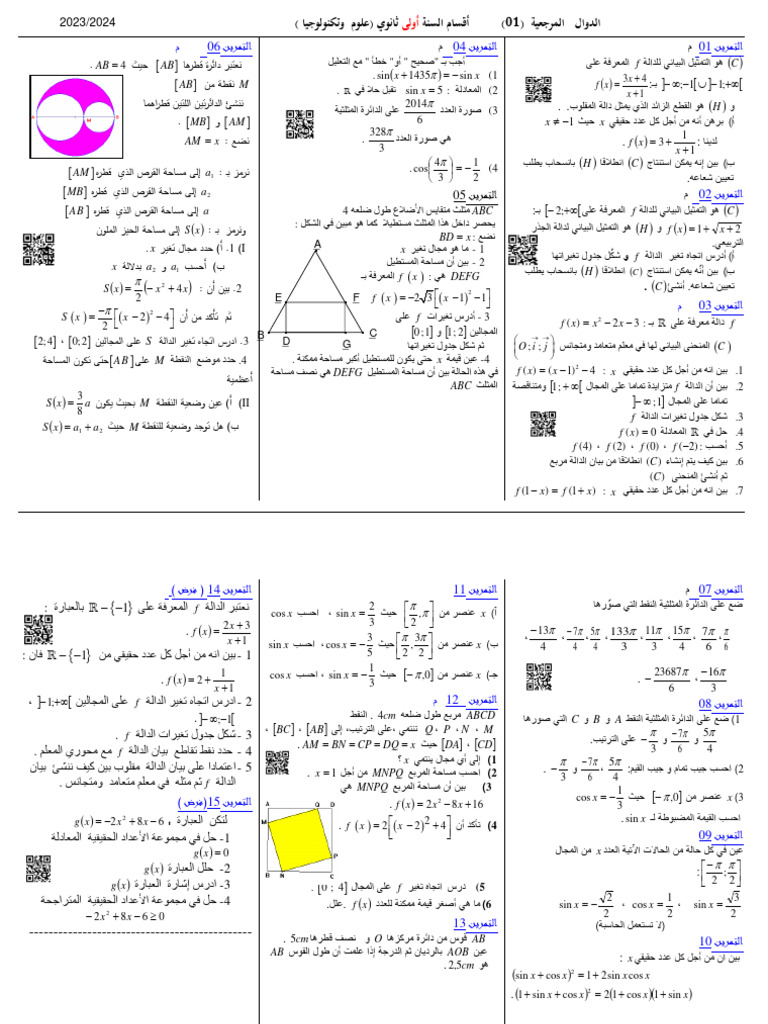 الدوال المرجعية (01) أقسام السنة أولى ثانوي (علوم وتكنولوجيا ) 2023/2024
التمرين 01 م
(C) هو التمثيل البياني للدالة f المعرفة على
]-∞;-1[∪]-1;+∞[ بـ: f(x)=(3x+4)/(x+1)
و (H) هو القطع الزائد الذي يمثل دالة المقلوب.
أ) برهن أنه من أجل كل عدد حقيقي x حيث x ≠ -1
لدينا : f(x)=3+1/(x+1) .
ب) بين إنه يمكن استنتاج (C) انطلاقا (H) بانسحاب يطلب
تعيين شعاعه.
التمرين 02 م
(C) هو التمثيل البياني للدالة f المعرفة على ]-2;+∞[ بـ:
f(x)=1+√(x+2) و (H) هو التمثيل البياني للدالة الجذر
التربيعي.
أ) أدرس اتجاه تغير الدالة f و شكّل جدول تغيراتها
ب) بين أنّه يمكن استنتاج (C) انطلاقا (H) بانسحاب يطلب
تعيين شعاعه. أنشئ (C) .
التمرين 03 م
f دالة معرفة على ℝ بـ : f(x)=x²-2x-3
(C) المنحنى البياني لها في معلم متعامد ومتجانس (O;i;j)
1. بين انه من أجل كل عدد حقيقي x : f(x)=(x-1)²-4
2. بين أن الدالة f متزايدة تماما على المجال [1;+∞[ ومتناقصة
تماما على المجال ]-∞;1]
3. شكل جدول تغيرات الدالة f
4. حل في ℝ المعادلة f(x)=0
5. أحسب : f(-2) ، f(0) ، f(2) ، f(4)
6. بين كيف يتم إنشاء (C) انطلاقا من بيان الدالة مربع
ثم أنشئ المنحنى (C)
7. بين انه من أجل كل عدد حقيقي x : f(1-x)=f(1+x)
التمرين 04 م
أجب بـ "صحيح " أو" خطأ " مع التعليل
1) sin(x+1435π)=-sin x .
2) المعادلة : sin x = 5 تقبل حلا في ℝ .
3) صورة العدد 2014π/6 على الدائرة المثلثية
هي صورة العدد 328π/3 .
4) cos(4π/3)=-1/2 .
التمرين 05
ABC مثلث متقايس الأضلاع طول ضلعه 4
يحصر داخل هذا المثلث مستطيلا كما هو مبين في الشكل :
نضع : BD = x
1 - ما هو مجال تغير x
2 - بين أن مساحة المستطيل
DEFG هي : f(x) المعرفة بـ
f(x)=-2√3[(x-1)²-1]
3 - أدرس تغيرات f على
المجالين [1;2] و [0;1]
ثم شكل جدول تغيراتها
4- عين قيمة x حتى يكون للمستطيل أكبر مساحة ممكنة .
في هذه الحالة بين أن مساحة المستطيل DEFG هي نصف مساحة
المثلث ABC
A
E F
B D G C
التمرين 06 م
نعتبر دائرة قطرها [AB] حيث AB = 4 .
M نقطة من [AB]
ننشئ الدائرتين اللتين قطراهما
[AM] و [MB] .
نضع : AM = x
A M B
نرمز بـ : a₁ إلى مساحة القرص الذي قطره [AM]
a₂ إلى مساحة القرص الذي قطره [MB]
a إلى مساحة القرص الذي قطره [AB]
ونرمز بـ : S(x) إلى مساحة الحيز الملون
I) 1. أ) حدد مجال تغير x .
ب) أحسب a₁ و a₂ بدلالة x
2. بين أن : S(x)=π/2(-x²+4x)
ثم تأكد من أن S(x)=-π/2[(x-2)²-4]
3. ادرس اتجاه تغير الدالة S على المجالين [0;2] ، [2;4]
4. حدد موضع النقطة M على [AB] حتى تكون المساحة
أعظمية
II) أ) عين وضعية النقطة M بحيث يكون S(x)=3/8 a
ب) هل توجد وضعية للنقطة M حيث S(x)=a₁+a₂
التمرين 07 م
ضع على الدائرة المثلثية النقط التي صورها
π/6 ، 7π/6 ، 15π/4 ، 11π/3 ، 133π/3 ، 5π/4 ، -7π/4 ، -13π/4 ،
-16π/3 ، -23687π/6 .
التمرين 08
1) ضع على الدائرة المثلثية النقط A و B و C التي صورها
5π/4 و -7π/6 و -π/3 على الترتيب.
2) احسب جيب تمام و جيب القيم: 5π/4 ، -7π/6 و -π/3 .
3) x عنصر من [-π,0] حيث cos x = -1/3
احسب القيمة المضبوطة لـ sin x .
التمرين 09
عين في كل حالة من الحالات الآتية العدد x من المجال
[-π/2;π/2] :
sin x = √3/2 ، cos x = 1/2 ، sin x = -√2/2
(لا تستعمل الحاسبة)
التمرين 10
بين أن من أجل كل عدد حقيقي x :
(sin x+cos x)²=1+2sin x cos x
(1+sin x+cos x)²=2(1+cos x)(1+sin x) .
التمرين 11
أ) x عنصر من [π/2,π] حيث sin x = 2/3 ، احسب cos x
ب) x عنصر من [π/2,3π/2] حيث cos x = -3/5 ، احسب sin x
جـ) x عنصر من [-π,0] حيث sin x = -1/3 ، احسب cos x
التمرين 12 م
ABCD مربع طول ضلعه 4cm . النقط
M ، N ، P ، Q تنتمي ،على الترتيب، إلى [AB] ، [BC] ،
[CD] ، [DA] حيث AM = BN = CP = DQ = x .
1) إلى أي مجال ينتمي x ؟
2) احسب مساحة المربع MNPQ من أجل x = 1 .
3) بين أن مساحة المربع MNPQ هي
f(x)=2x²-8x+16 .
4) تأكد أن f(x)=2[(x-2)²+4] .
A Q D
M P
B N C
5) درس اتجاه تغير f على المجال [0;4] .
6) ما هي أصغر قيمة ممكنة للعدد f(x) .علل.
التمرين 13
AB قوس من دائرة مركزها O و نصف قطرها 5cm .
عين AOB بالرديان ثم الدرجة إذا علمت أن طول القوس AB
هو 2,5cm .
التمرين 14 ( فرض )
نعتبر الدالة f المعرفة على ℝ-{-1} بالعبارة :
f(x)=(2x+3)/(x+1) .
1 - بين انه من أجل كل عدد حقيقي من ℝ-{-1} فان :
f(x)=2+1/(x+1) .
2 - ادرس اتجاه تغير الدالة f على المجالين ]-1;+∞[ ،
]-∞;-1[ .
3 - شكل جدول تغيرات الدالة f .
4 - حدد نقط تقاطع بيان الدالة f مع محوري المعلم .
5 - اعتمادا على بيان الدالة مقلوب بين كيف ننشئ بيان
الدالة f ثم مثله في معلم متعامد ومتجانس .
التمرين 15( فرض )
لتكن العبارة ، g(x)=-2x²+8x-6
1- حل في مجموعة الأعداد الحقيقية المعادلة
g(x)=0
2- حلل العبارة g(x)
3- ادرس إشارة العبارة g(x)
4- حل في مجموعة الأعداد الحقيقية المتراجحة
-2x²+8x-6≥0